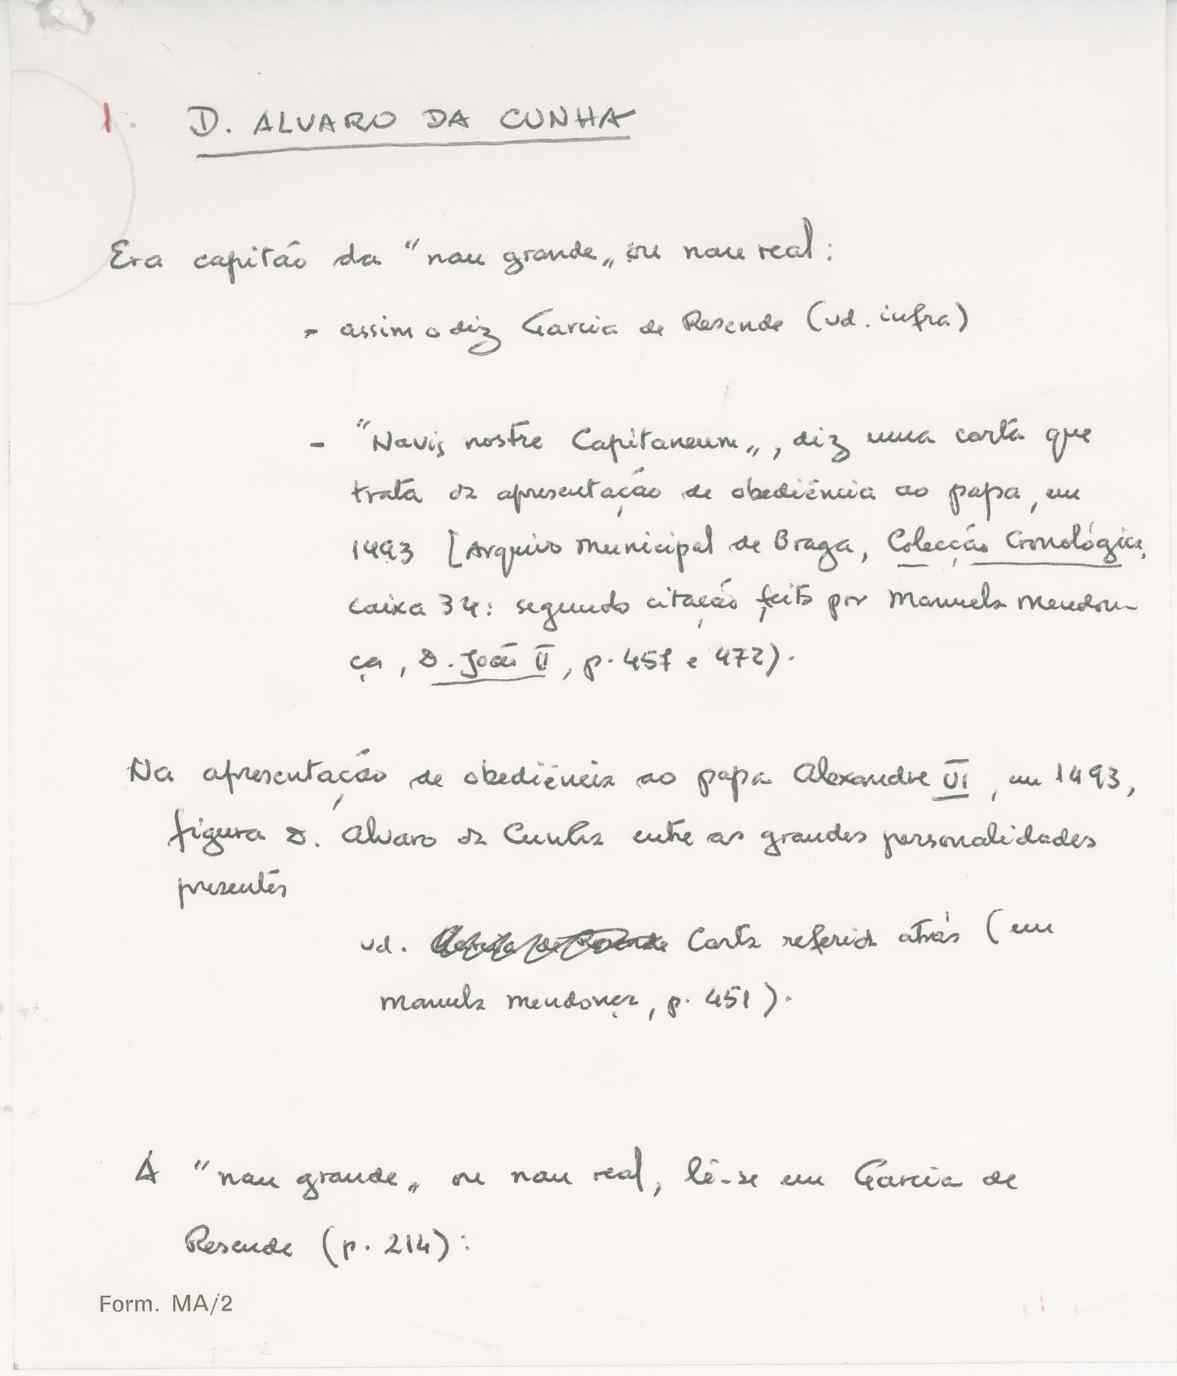 1. D. ALVARO DA CUNHA
Era capitão da "nau grande" ou nau real:
- assim o diz Garcia de Resende (vd. infra)
- "Navis nostre Capitaneum", diz uma carta que
trata da apresentação de obediência ao papa, em
1493 [Arquivo Municipal de Braga, Colecção Cronológica,
caixa 34: segundo citação feita por Manuela Mendon-
ça, D. João II, p. 457 e 472).
Na apresentação de obediência ao papa Alexandre VI, em 1493,
figura D. Álvaro da Cunha entre as grandes personalidades
presentes
vd. Carta referida atrás (em
Manuela Mendonça, p. 451).
À "nau grande" ou nau real, lê-se em Garcia de
Resende (p. 214):
Form. MA/2